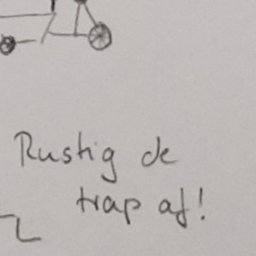 Rustig de
trap af!